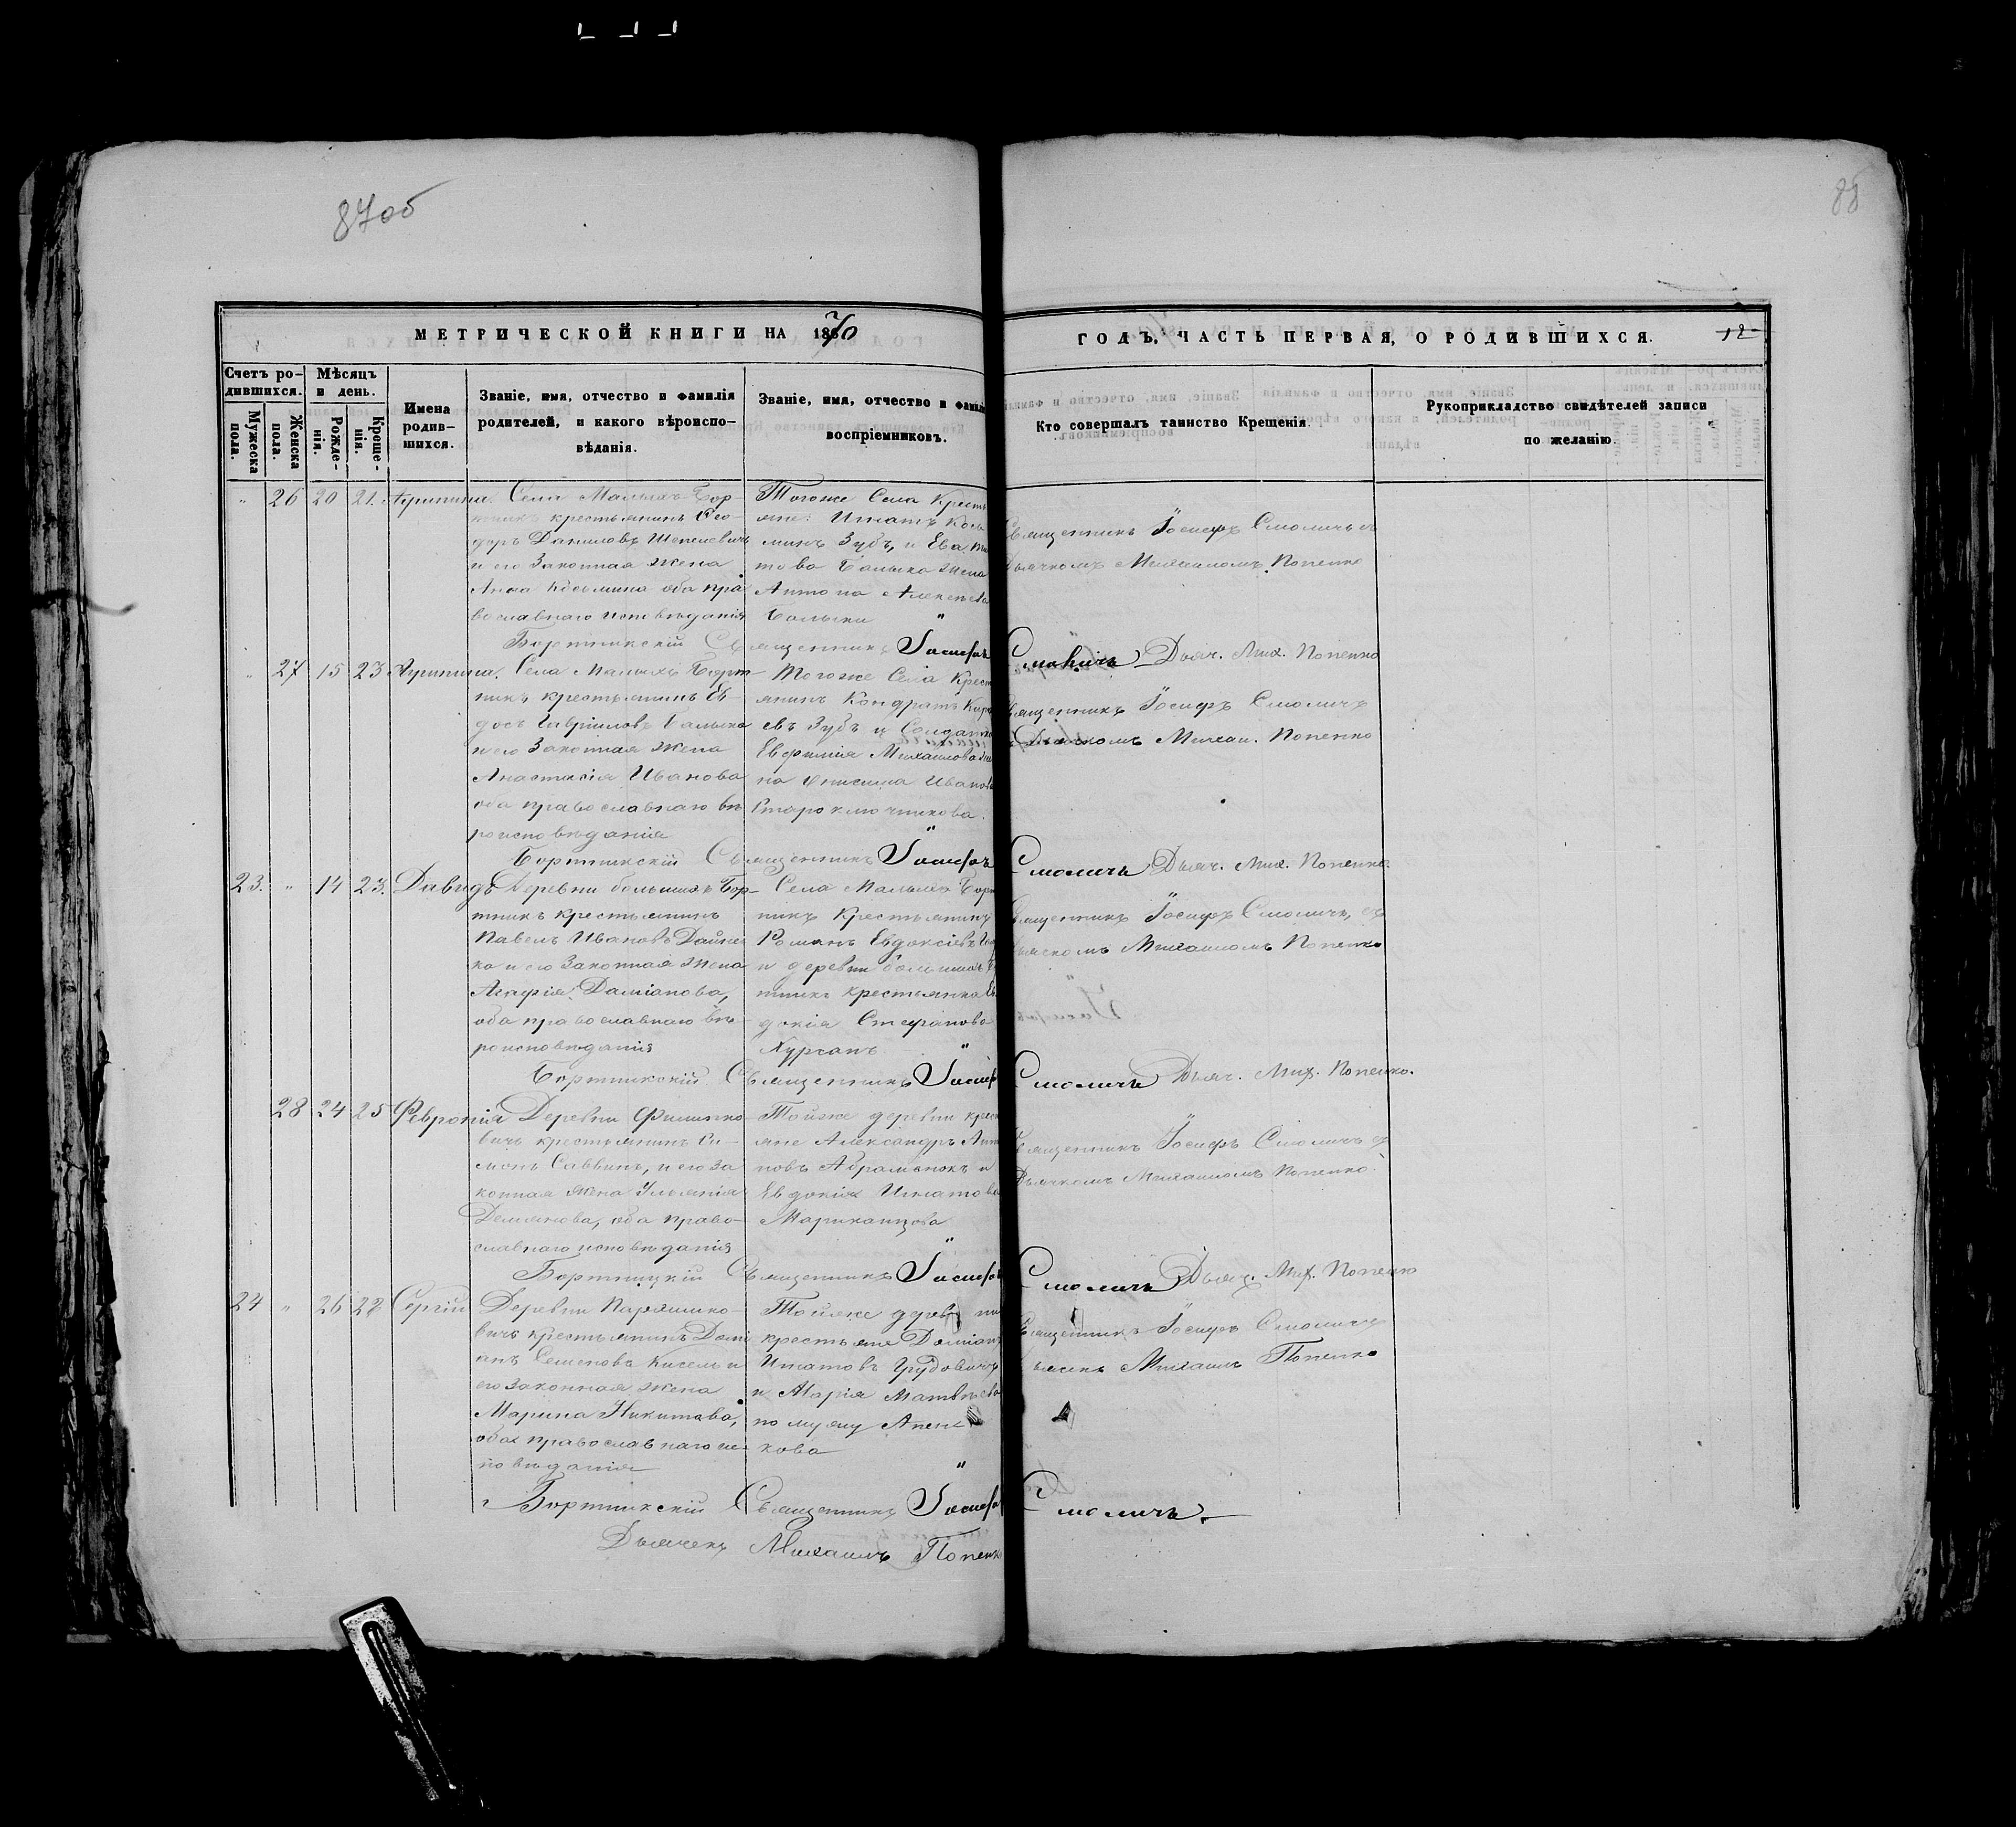 87об
88
МЕТРИЧЕСКОЙ КНИГИ НА 1870
ГОДЪ, ЧАСТЬ ПЕРВАЯ, О РОДИВШИХСЯ.
12
Счетъ ро-
дившихся.
Мужеска пола.
Женска пола.
Мѣсяцъ
и день.
Рожде-
нія.
Креще-
нія.
Имена
родив-
шихся.
Званіе, имя, отчество и фамилія
родителей, и какого вѣроиспо-
вѣданія.
Званіе, имя, отчество и фами
воспріемниковъ.
Кто совершалъ таинство Крещенія.
Рукоприкладство свидѣтелей записи
по желанію.
" 26 20 21. Агрипина.
Села Малыхъ Бор-
тникъ крестьянинъ Ѳео-
доръ Даниловъ Шепелевичъ
и его Законная жена
Анна Косьмина оба пра
вославнаго исповѣданія
Тогоже Села Крестья
яне: Игнатъ Кось
минъ Зубъ, и Ева
това Балыка жена
Антона Алексѣева
Балыки
Священникъ Іосифъ Смоличъ съ
Дьячкомъ Михаиломъ Попенко
Бортникскій Священникъ Іосифъ Смоличъ Дьяч. Мих. Попенко
" 27 15 23 Агрипина.
Села Малыхъ Борт-
никъ крестьянинъ Ев-
досъ Гавріиловъ Балыка
и его Законная жена
Анастасія Иванова
оба православнаго вѣ
роисповѣданія
Тогоже Села Крест
янинъ Кондратъ
евъ Зубъ и Солдатка
Евфимія Михаилова
на Онисима Иванов
Староключникова.
Священникъ Іосифъ Смоличъ
Дьячкомъ Михаи. Попенко
Бортникскій Священникъ Іосифъ Смоличъ Дьяч. Мих. Попенко.
23. " 14 23. Давидъ
Деревни большихъ Бор-
тникъ крестьянинъ
Павелъ Ивановъ Дайне
ко и его Законная жена
Агафія Даміанова,
оба православнаго вѣ-
роисповѣданія
Села Малыхъ Борт
никъ Крестьянинъ
Романъ Евдоксіевъ
и деревни большихъ
тникъ крестьянка Ев
докія Стефанова
Хурсанъ
Священникъ Іосифъ Смоличъ, съ
Дьячкомъ Михаиломъ Попенко
Бортникскій Священникъ Іосифъ Смоличъ Дьяч. Мих. Попенко.
28 24 25 Февронія
Деревни Филипко-
вичъ крестьянинъ Си-
монъ Саввинъ, и его за
конная жена Ульянія
Демянова, оба право-
славнаго исповѣданія
Тойже деревни крест
яне Александръ Анто
новъ Абраменокъ и
Евдокія Игнатова
Мариканцова
Священникъ Іосифъ Смоличъ съ
Дьячкомъ Михаиломъ Попенко.
Бортницкій Священникъ Іосифъ Смоличъ Дьяч. Мих. Попенко
24 " 26 28 Сергій
Деревни
вичъ крестьянинъ Дами
анъ Семеновъ Кисель и
его законная жена
Марина Никитова,
оба православнаго ис-
повѣданія
Тойже деревни
крестьяне Даміанъ
Игнатовъ Грудовичъ
и Марія Матвѣева
по мужу
кова
Священникъ Іосифъ Смоличъ
Дьячекъ Михаилъ Попенко
Бортникскій Священникъ Іосифъ Смоличъ.
Дьячекъ Михаилъ Попенко